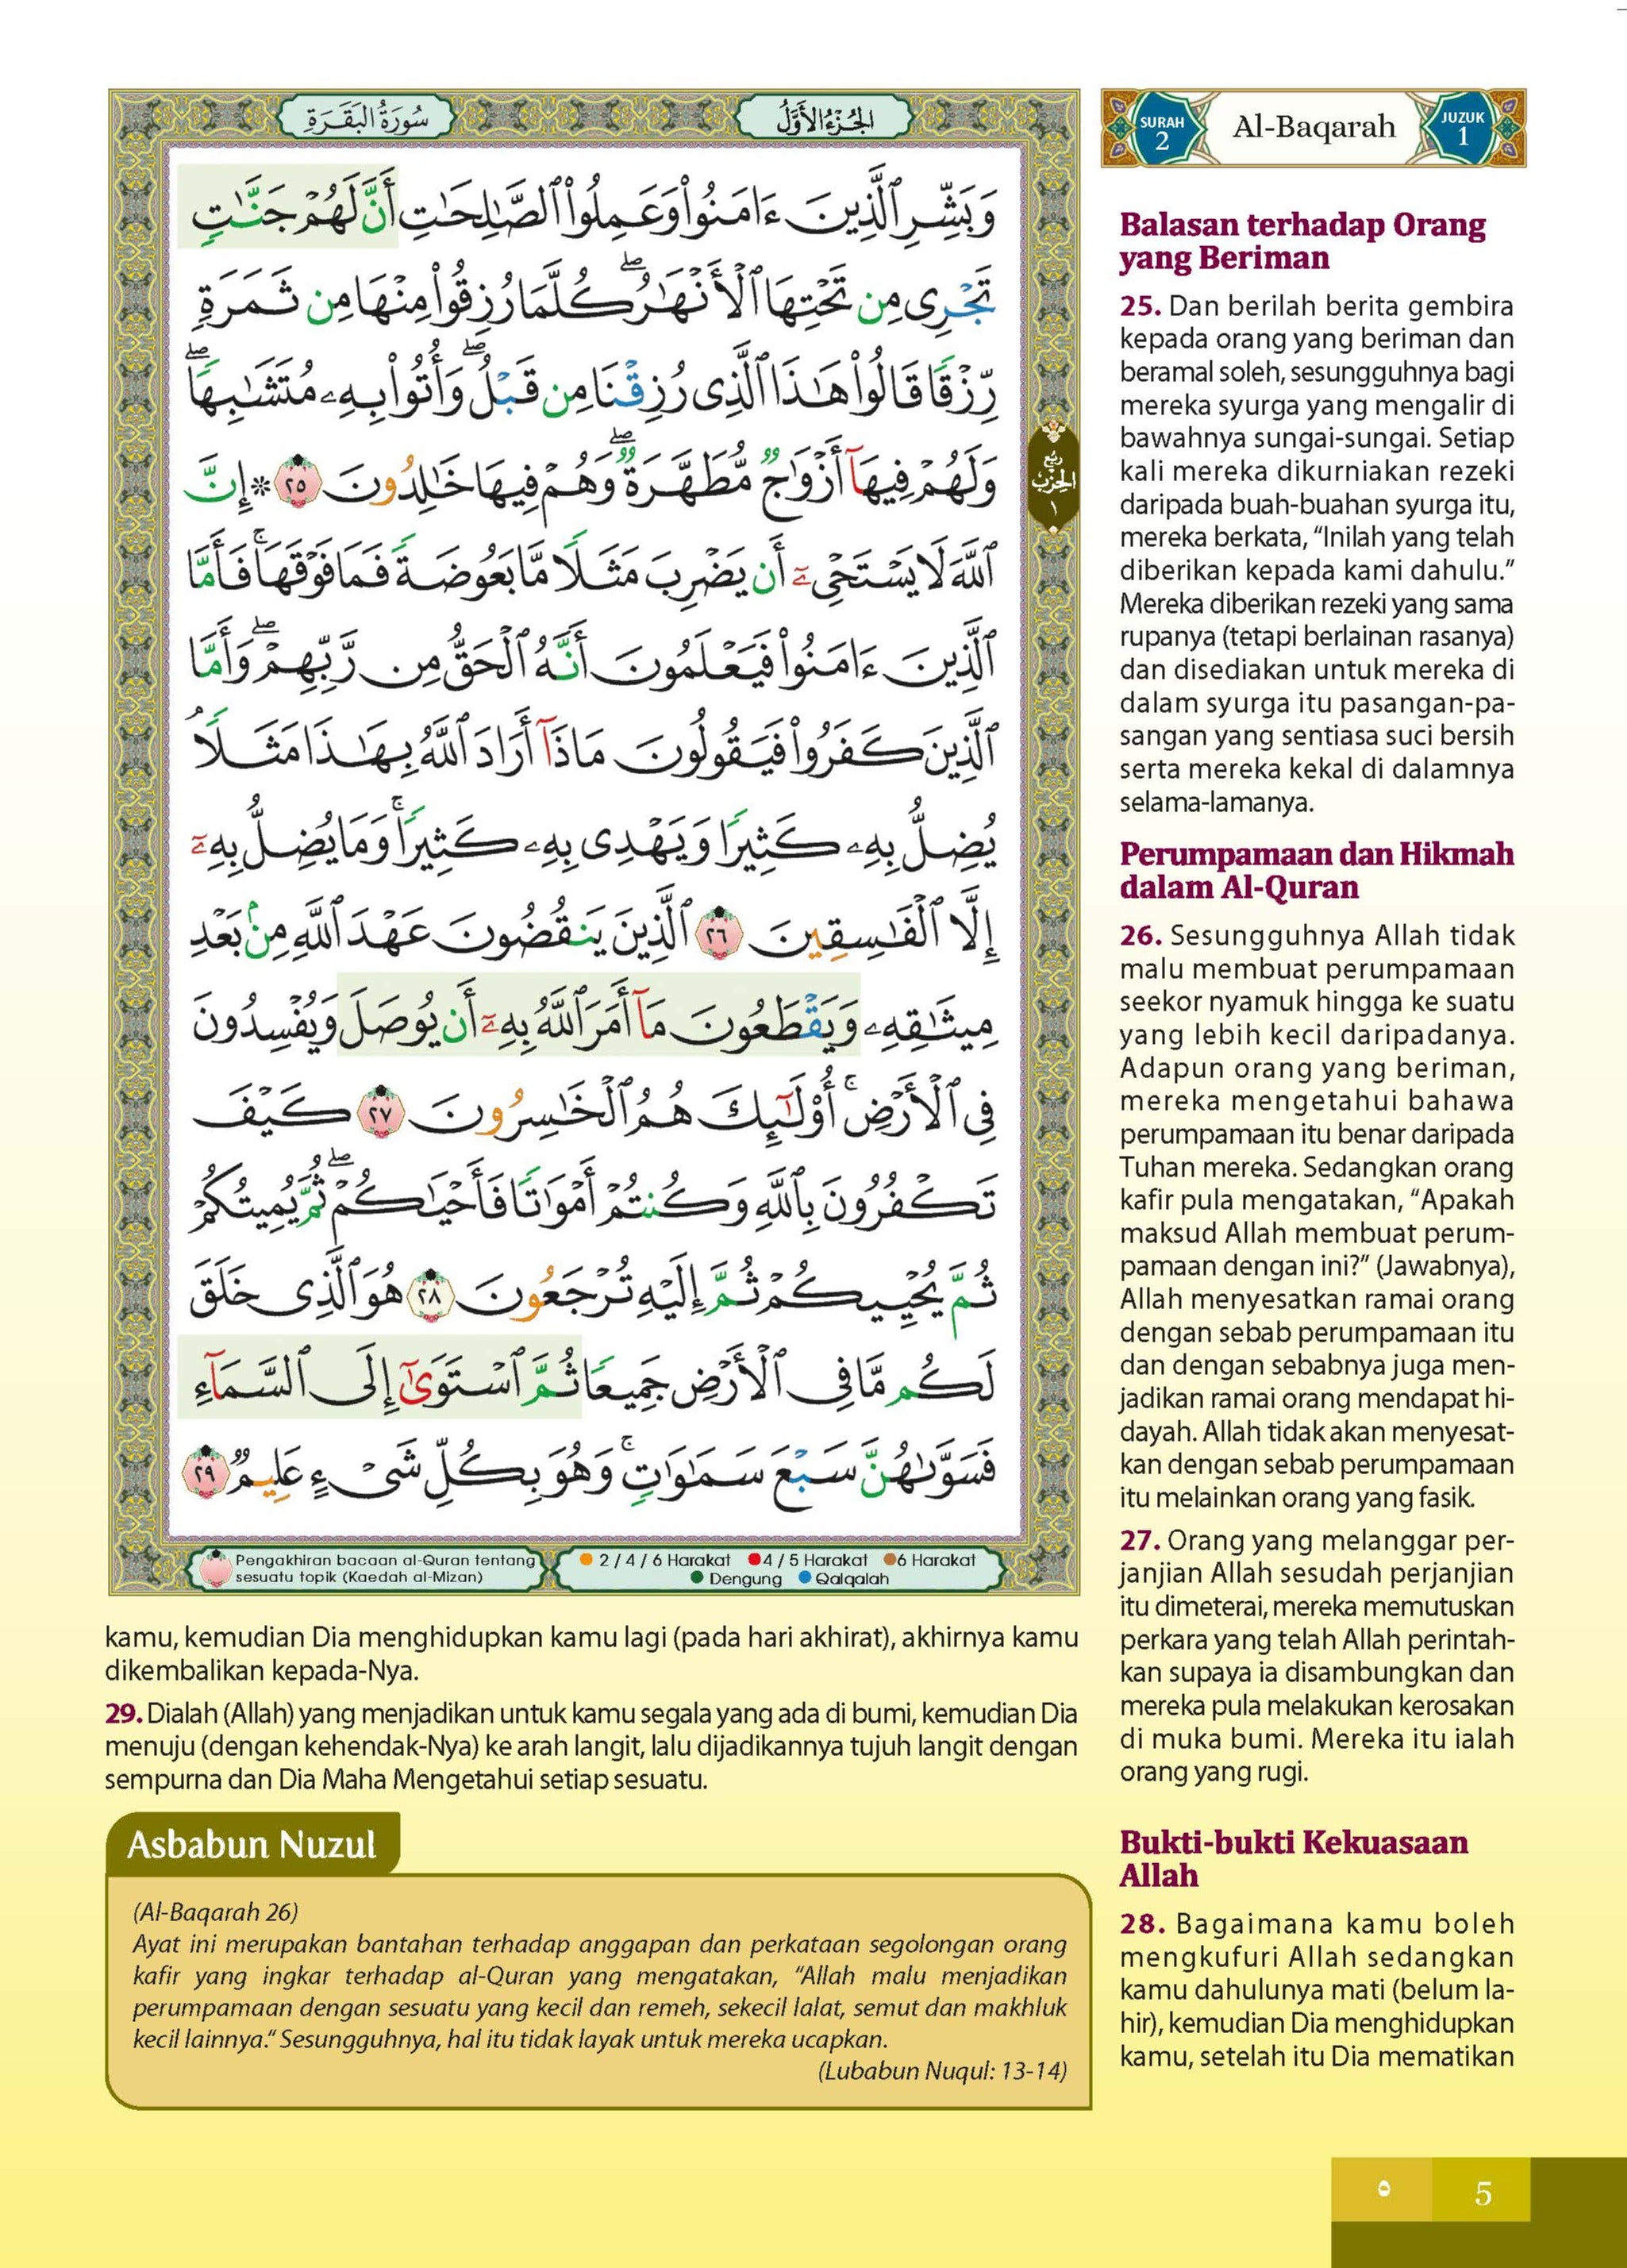 سُورَةُ البَقَرَةِ
الجُزْءُ الأَوَّلُ
وَبَشِّرِ ٱلَّذِينَ ءَامَنُوا۟ وَعَمِلُوا۟ ٱلصَّـٰلِحَـٰتِ أَنَّ لَهُمْ جَنَّـٰتٍ
تَجْرِى مِن تَحْتِهَا ٱلْأَنْهَـٰرُ ۖ كُلَّمَا رُزِقُوا۟ مِنْهَا مِن ثَمَرَةٍ
رِّزْقًا قَالُوا۟ هَـٰذَا ٱلَّذِى رُزِقْنَا مِن قَبْلُ ۖ وَأُتُوا۟ بِهِۦ مُتَشَـٰبِهًا ۖ
وَلَهُمْ فِيهَآ أَزْوَٰجٌ مُّطَهَّرَةٌ ۖ وَهُمْ فِيهَا خَـٰلِدُونَ ٢٥ * إِنَّ
ٱللَّهَ لَا يَسْتَحْىِۦٓ أَن يَضْرِبَ مَثَلًا مَّا بَعُوضَةً فَمَا فَوْقَهَا ۚ فَأَمَّا
ٱلَّذِينَ ءَامَنُوا۟ فَيَعْلَمُونَ أَنَّهُ ٱلْحَقُّ مِن رَّبِّهِمْ ۖ وَأَمَّا
ٱلَّذِينَ كَفَرُوا۟ فَيَقُولُونَ مَاذَآ أَرَادَ ٱللَّهُ بِهَـٰذَا مَثَلًا ۘ
يُضِلُّ بِهِۦ كَثِيرًا وَيَهْدِى بِهِۦ كَثِيرًا ۚ وَمَا يُضِلُّ بِهِۦٓ
إِلَّا ٱلْفَـٰسِقِينَ ٢٦ ٱلَّذِينَ يَنقُضُونَ عَهْدَ ٱللَّهِ مِنۢ بَعْدِ
مِيثَـٰقِهِۦ وَيَقْطَعُونَ مَآ أَمَرَ ٱللَّهُ بِهِۦٓ أَن يُوصَلَ وَيُفْسِدُونَ
فِى ٱلْأَرْضِ ۚ أُو۟لَـٰٓئِكَ هُمُ ٱلْخَـٰسِرُونَ ٢٧ كَيْفَ
تَكْفُرُونَ بِٱللَّهِ وَكُنتُمْ أَمْوَٰتًا فَأَحْيَـٰكُمْ ۖ ثُمَّ يُمِيتُكُمْ
ثُمَّ يُحْيِيكُمْ ثُمَّ إِلَيْهِ تُرْجَعُونَ ٢٨ هُوَ ٱلَّذِى خَلَقَ
لَكُم مَّا فِى ٱلْأَرْضِ جَمِيعًا ثُمَّ ٱسْتَوَىٰٓ إِلَى ٱلسَّمَآءِ
فَسَوَّىٰهُنَّ سَبْعَ سَمَـٰوَٰتٍ ۚ وَهُوَ بِكُلِّ شَىْءٍ عَلِيمٌ ٢٩
رُبْع
الحِزْب
١
Pengakhiran bacaan al-Quran tentang
sesuatu topik (Kaedah al-Mizan)
2 / 4 / 6 Harakat 4 / 5 Harakat 6 Harakat
Dengung Qalqalah
SURAH
2
Al-Baqarah
JUZUK
1
Balasan terhadap Orang
yang Beriman
25. Dan berilah berita gembira
kepada orang yang beriman dan
beramal soleh, sesungguhnya bagi
mereka syurga yang mengalir di
bawahnya sungai-sungai. Setiap
kali mereka dikurniakan rezeki
daripada buah-buahan syurga itu,
mereka berkata, “Inilah yang telah
diberikan kepada kami dahulu.”
Mereka diberikan rezeki yang sama
rupanya (tetapi berlainan rasanya)
dan disediakan untuk mereka di
dalam syurga itu pasangan-pa-
sangan yang sentiasa suci bersih
serta mereka kekal di dalamnya
selama-lamanya.
Perumpamaan dan Hikmah
dalam Al-Quran
26. Sesungguhnya Allah tidak
malu membuat perumpamaan
seekor nyamuk hingga ke suatu
yang lebih kecil daripadanya.
Adapun orang yang beriman,
mereka mengetahui bahawa
perumpamaan itu benar daripada
Tuhan mereka. Sedangkan orang
kafir pula mengatakan, “Apakah
maksud Allah membuat perum-
pamaan dengan ini?” (Jawabnya),
Allah menyesatkan ramai orang
dengan sebab perumpamaan itu
dan dengan sebabnya juga men-
jadikan ramai orang mendapat hi-
dayah. Allah tidak akan menyesat-
kan dengan sebab perumpamaan
itu melainkan orang yang fasik.
27. Orang yang melanggar per-
janjian Allah sesudah perjanjian
itu dimeterai, mereka memutuskan
perkara yang telah Allah perintah-
kan supaya ia disambungkan dan
mereka pula melakukan kerosakan
di muka bumi. Mereka itu ialah
orang yang rugi.
Bukti-bukti Kekuasaan
Allah
28. Bagaimana kamu boleh
mengkufuri Allah sedangkan
kamu dahulunya mati (belum la-
hir), kemudian Dia menghidupkan
kamu, setelah itu Dia mematikan
kamu, kemudian Dia menghidupkan kamu lagi (pada hari akhirat), akhirnya kamu
dikembalikan kepada-Nya.
29. Dialah (Allah) yang menjadikan untuk kamu segala yang ada di bumi, kemudian Dia
menuju (dengan kehendak-Nya) ke arah langit, lalu dijadikannya tujuh langit dengan
sempurna dan Dia Maha Mengetahui setiap sesuatu.
Asbabun Nuzul
(Al-Baqarah 26)
Ayat ini merupakan bantahan terhadap anggapan dan perkataan segolongan orang
kafir yang ingkar terhadap al-Quran yang mengatakan, “Allah malu menjadikan
perumpamaan dengan sesuatu yang kecil dan remeh, sekecil lalat, semut dan makhluk
kecil lainnya.“ Sesungguhnya, hal itu tidak layak untuk mereka ucapkan.
(Lubabun Nuqul: 13-14)
٥
5